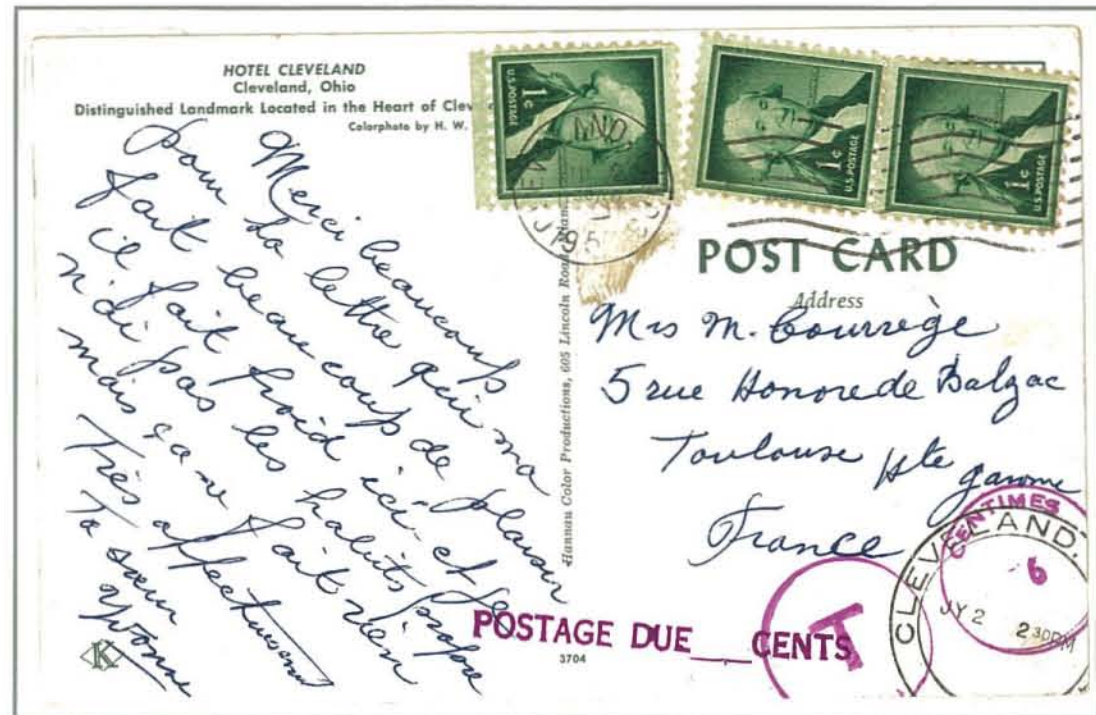 HOTEL CLEVELAND
Cleveland, Ohio
Distinguished Landmark Located in the Heart of Clev
Colorphoto by H. W.
Merci beaucoup
pour ta lettre qui ma
fait beaucoup de plaisir
il fait froid ici et je
n'di pas les habits propre
mais ça ne fait rien
Très affectueusement
Ta sœur
Yvonne
K
Hannau Color Productions, 605 Lincoln Road
3704
U.S. POSTAGE 1¢
U.S. POSTAGE 1¢
U.S. POSTAGE 1¢
POST CARD
Address
Mrs M. Courrège
5 rue Honore de Balzac
Toulouse Hte garonne
France
POSTAGE DUE___CENTS
T
CENTIMES
6
CLEVELAND,
JY 2 2 30PM